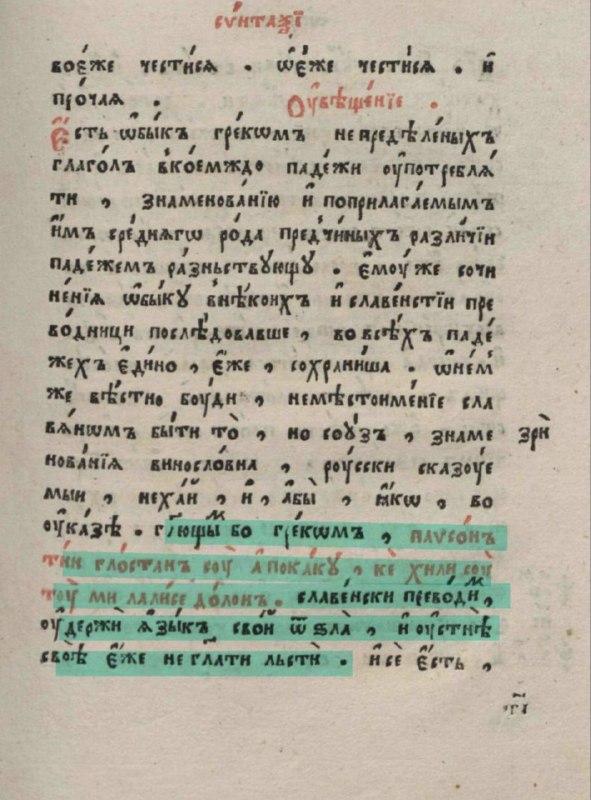 сѵ́нтаѯї
вое́же че́стисѧ . ѿе́же че́стисѧ . и҆
про́чаѧ . Оу҆вѣще́нїе .
Е҆́сть ѡ҆бы́къ гре́кѡмъ непредѣле́ныхъ
глаго́лъ вко́емждо паде́жи ᲂу҆потреблѧ́
ти , знаменова́нїю и҆ поприлага́емымъ
и҆̀мъ сре́днѧгѡ ро́да предчи́нныхъ разли́чїи
паде́жемъ ра́зньствꙋющꙋ . є҆мꙋ́же сочи
не́нїѧ ѡ҆бы́кꙋ внѣ́коихъ и҆ славе́нстїи пре
во́дници послѣ́довавше , вовсѣ́хъ паде́
жехъ є҆ди́но , є҆́же , сохрани́ша . ѡ҆не́м
же вѣ́стно бᲂу́ди , немѣстоиме́нїе сла
вѧ́нѡмъ бы́ти то̀ , но сᲂу́зъ , знаме зрѝ
нова́нїѧ виносло́вна , рᲂу́сски сказᲂу́е
мыи , неха́й , и҆ , а҆бы̀ , ꙗ҆́кѡ , во
ᲂу҆ка́зѣ . гл҃ющымъ бо гре́кѡмъ , паѵсо́нъ
ти́н гло́станъ сᲂу҆ а҆пока́кꙋ , кѐ хи́ли сᲂу҆
тᲂу҆̀ ми лали́се до́лонъ . славе́нски прево́дим ,
ᲂу҆держѝ ꙗ҆зы́къ сво́й ѿ ѕла̀ , и҆ ᲂу҆стнѣ̀
своѣ̀ є҆́же не гл҃ати льстѝ . и҆ сѐ є҆́сть ,